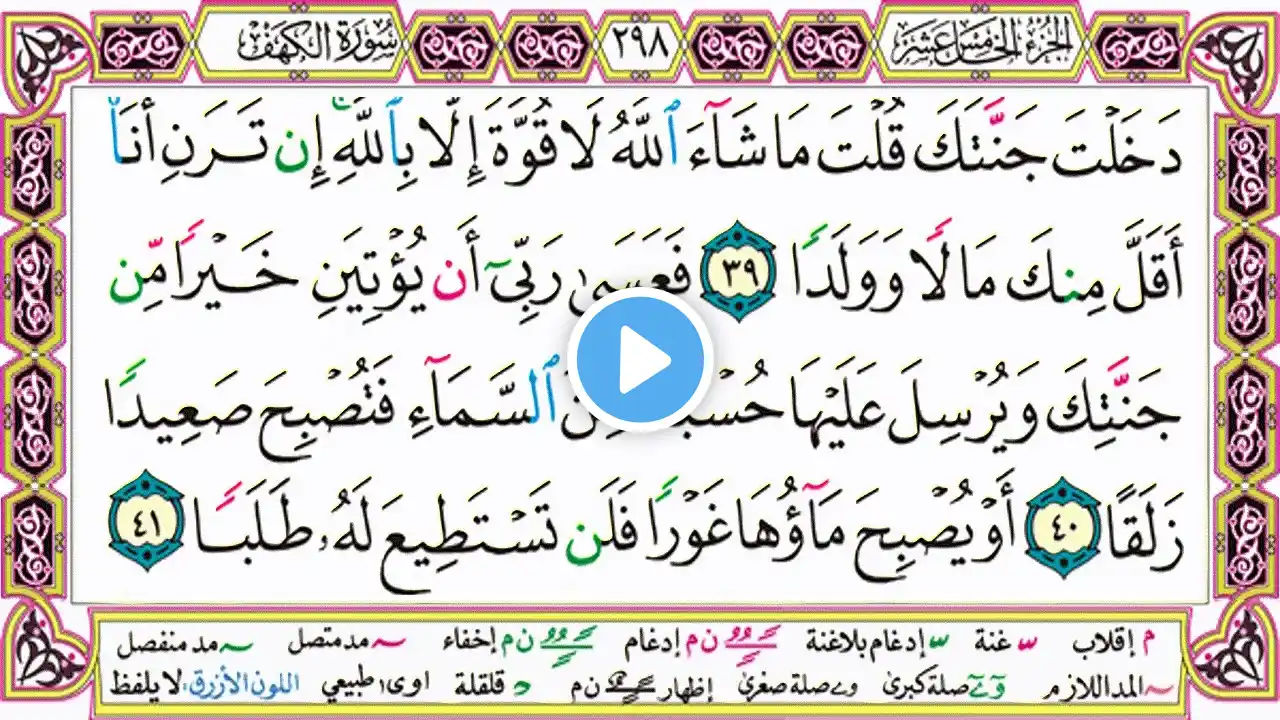 سُورَةُ الكَهْفِ ٢٩٨ الجُزءُ الخَامِسَ عَشَرَ
دَخَلْتَ جَنَّتَكَ قُلْتَ مَا شَآءَ ٱللَّهُ لَا قُوَّةَ إِلَّا بِٱللَّهِ إِن تَرَنِ أَنَا۠
أَقَلَّ مِنكَ مَالًا وَوَلَدًا ٣٩ فَعَسَىٰ رَبِّىٓ أَن يُؤْتِيَنِ خَيْرًا مِّن
جَنَّتِكَ وَيُرْسِلَ عَلَيْهَا ٱلسَّمَآءِ فَتُصْبِحَ صَعِيدًا
زَلَقًا ٤٠ أَوْ يُصْبِحَ مَآؤُهَا غَوْرًا فَلَن تَسْتَطِيعَ لَهُۥ طَلَبًا ٤١
م إقلاب ّ غنة ّ إدغام بلاغنة ن م إدغام ن م إخفاء ~ مد متصل ~ مد منفصل
~ المد اللازم و ے صلة كبرى و ے صلة صغرى إظهار ن م د قلقلة اوى طبيعي اللون الأزرق لا يلفظ